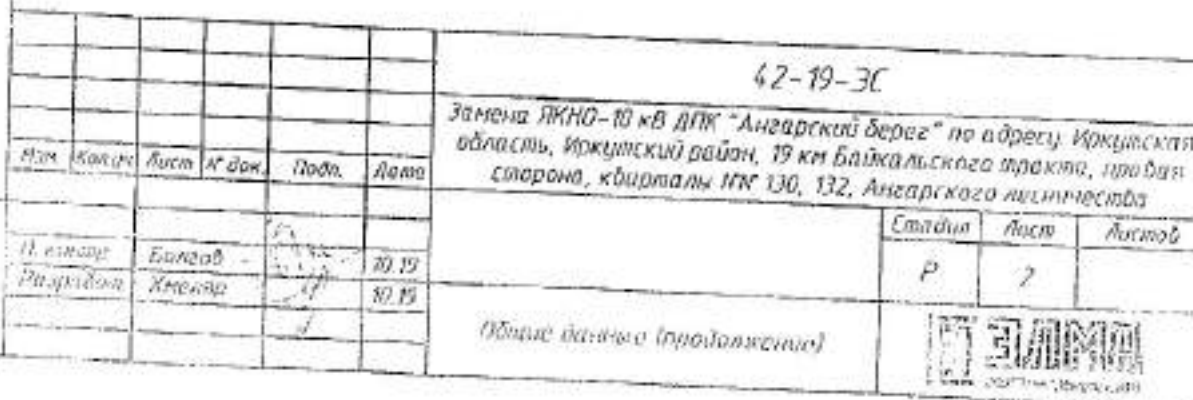 42-19-ЭС
Замена ЯКНО-10 кВ ДПК "Ангарский берег" по адресу: Иркутская
область, Иркутский район, 19 км Байкальского тракта, правая
сторона, кварталы №№ 130, 132, Ангарского лесничества
Изм. Кол.уч. Лист № док. Подп. Дата
Стадия Лист Листов
Р 2
Болгов 10.19
Разработал 10.19
Общие данные (продолжение)
ЭЛМА